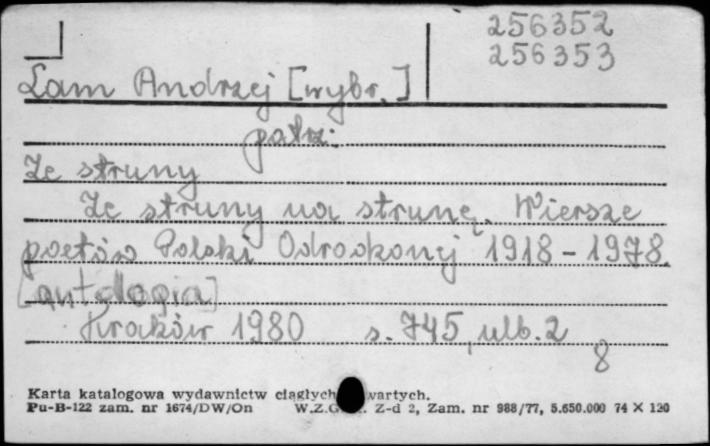 256352
256353
Lam Andrzej [wybr.]
patrz:
Ze struny
Ze struny na strunę. Wiersze
poetów Polski Odrodzonej 1918-1978.
[antologia]
Kraków 1980 s. 745, ulb. 2
8
Karta katalogowa wydawnictw ciągłych wartych.
Pu-B-122 zam. nr 1674/DW/On W.Z.G. Z-d 2, Zam. nr 988/77, 5.650.000 74 X 120